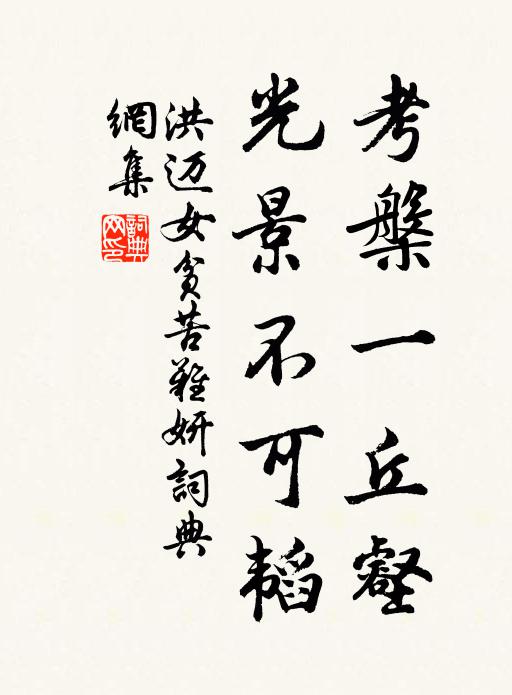 考槃一丘壑
光景不可韬
洪迈女贫苦难妍詞典
網集
詞典網印